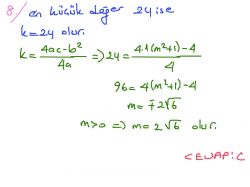 8/ en küçük değer 24 ise
k=24 olur.
k = \frac{4ac-b^2}{4a} ⇒ 24 = \frac{4.1(m^2+1)-4}{4}
96 = 4(m^2+1)-4
m = ∓2√6
m>0 ⇒ m = 2√6 olur.
CEVAP: C